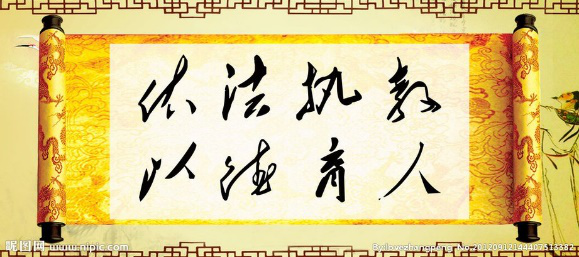 依法执教
以德育人
昵图网 www.nipic.com
By:loveshangpeng No:20120912144407513382